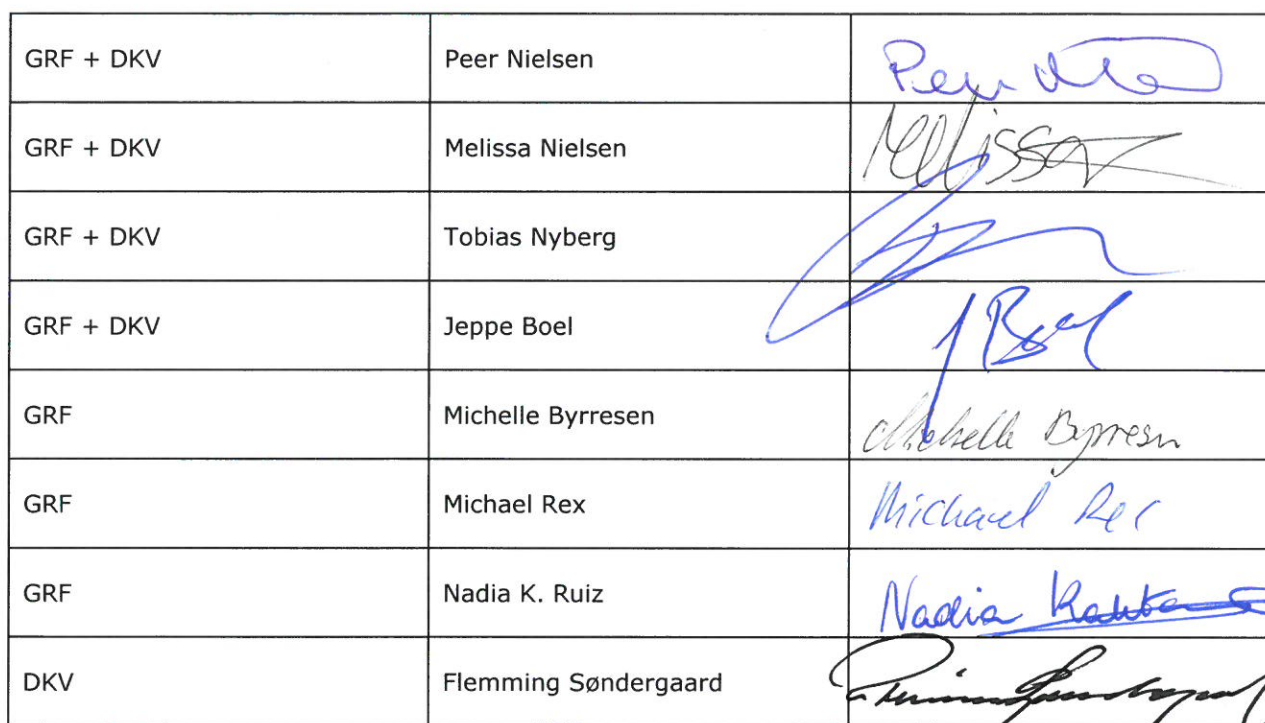 GRF + DKV Peer Nielsen Peer
GRF + DKV Melissa Nielsen Melissa
GRF + DKV Tobias Nyberg
GRF + DKV Jeppe Boel J Boel
GRF Michelle Byrresen Michelle Byrresen
GRF Michael Rex Michael Rex
GRF Nadia K. Ruiz Nadia
DKV Flemming Søndergaard